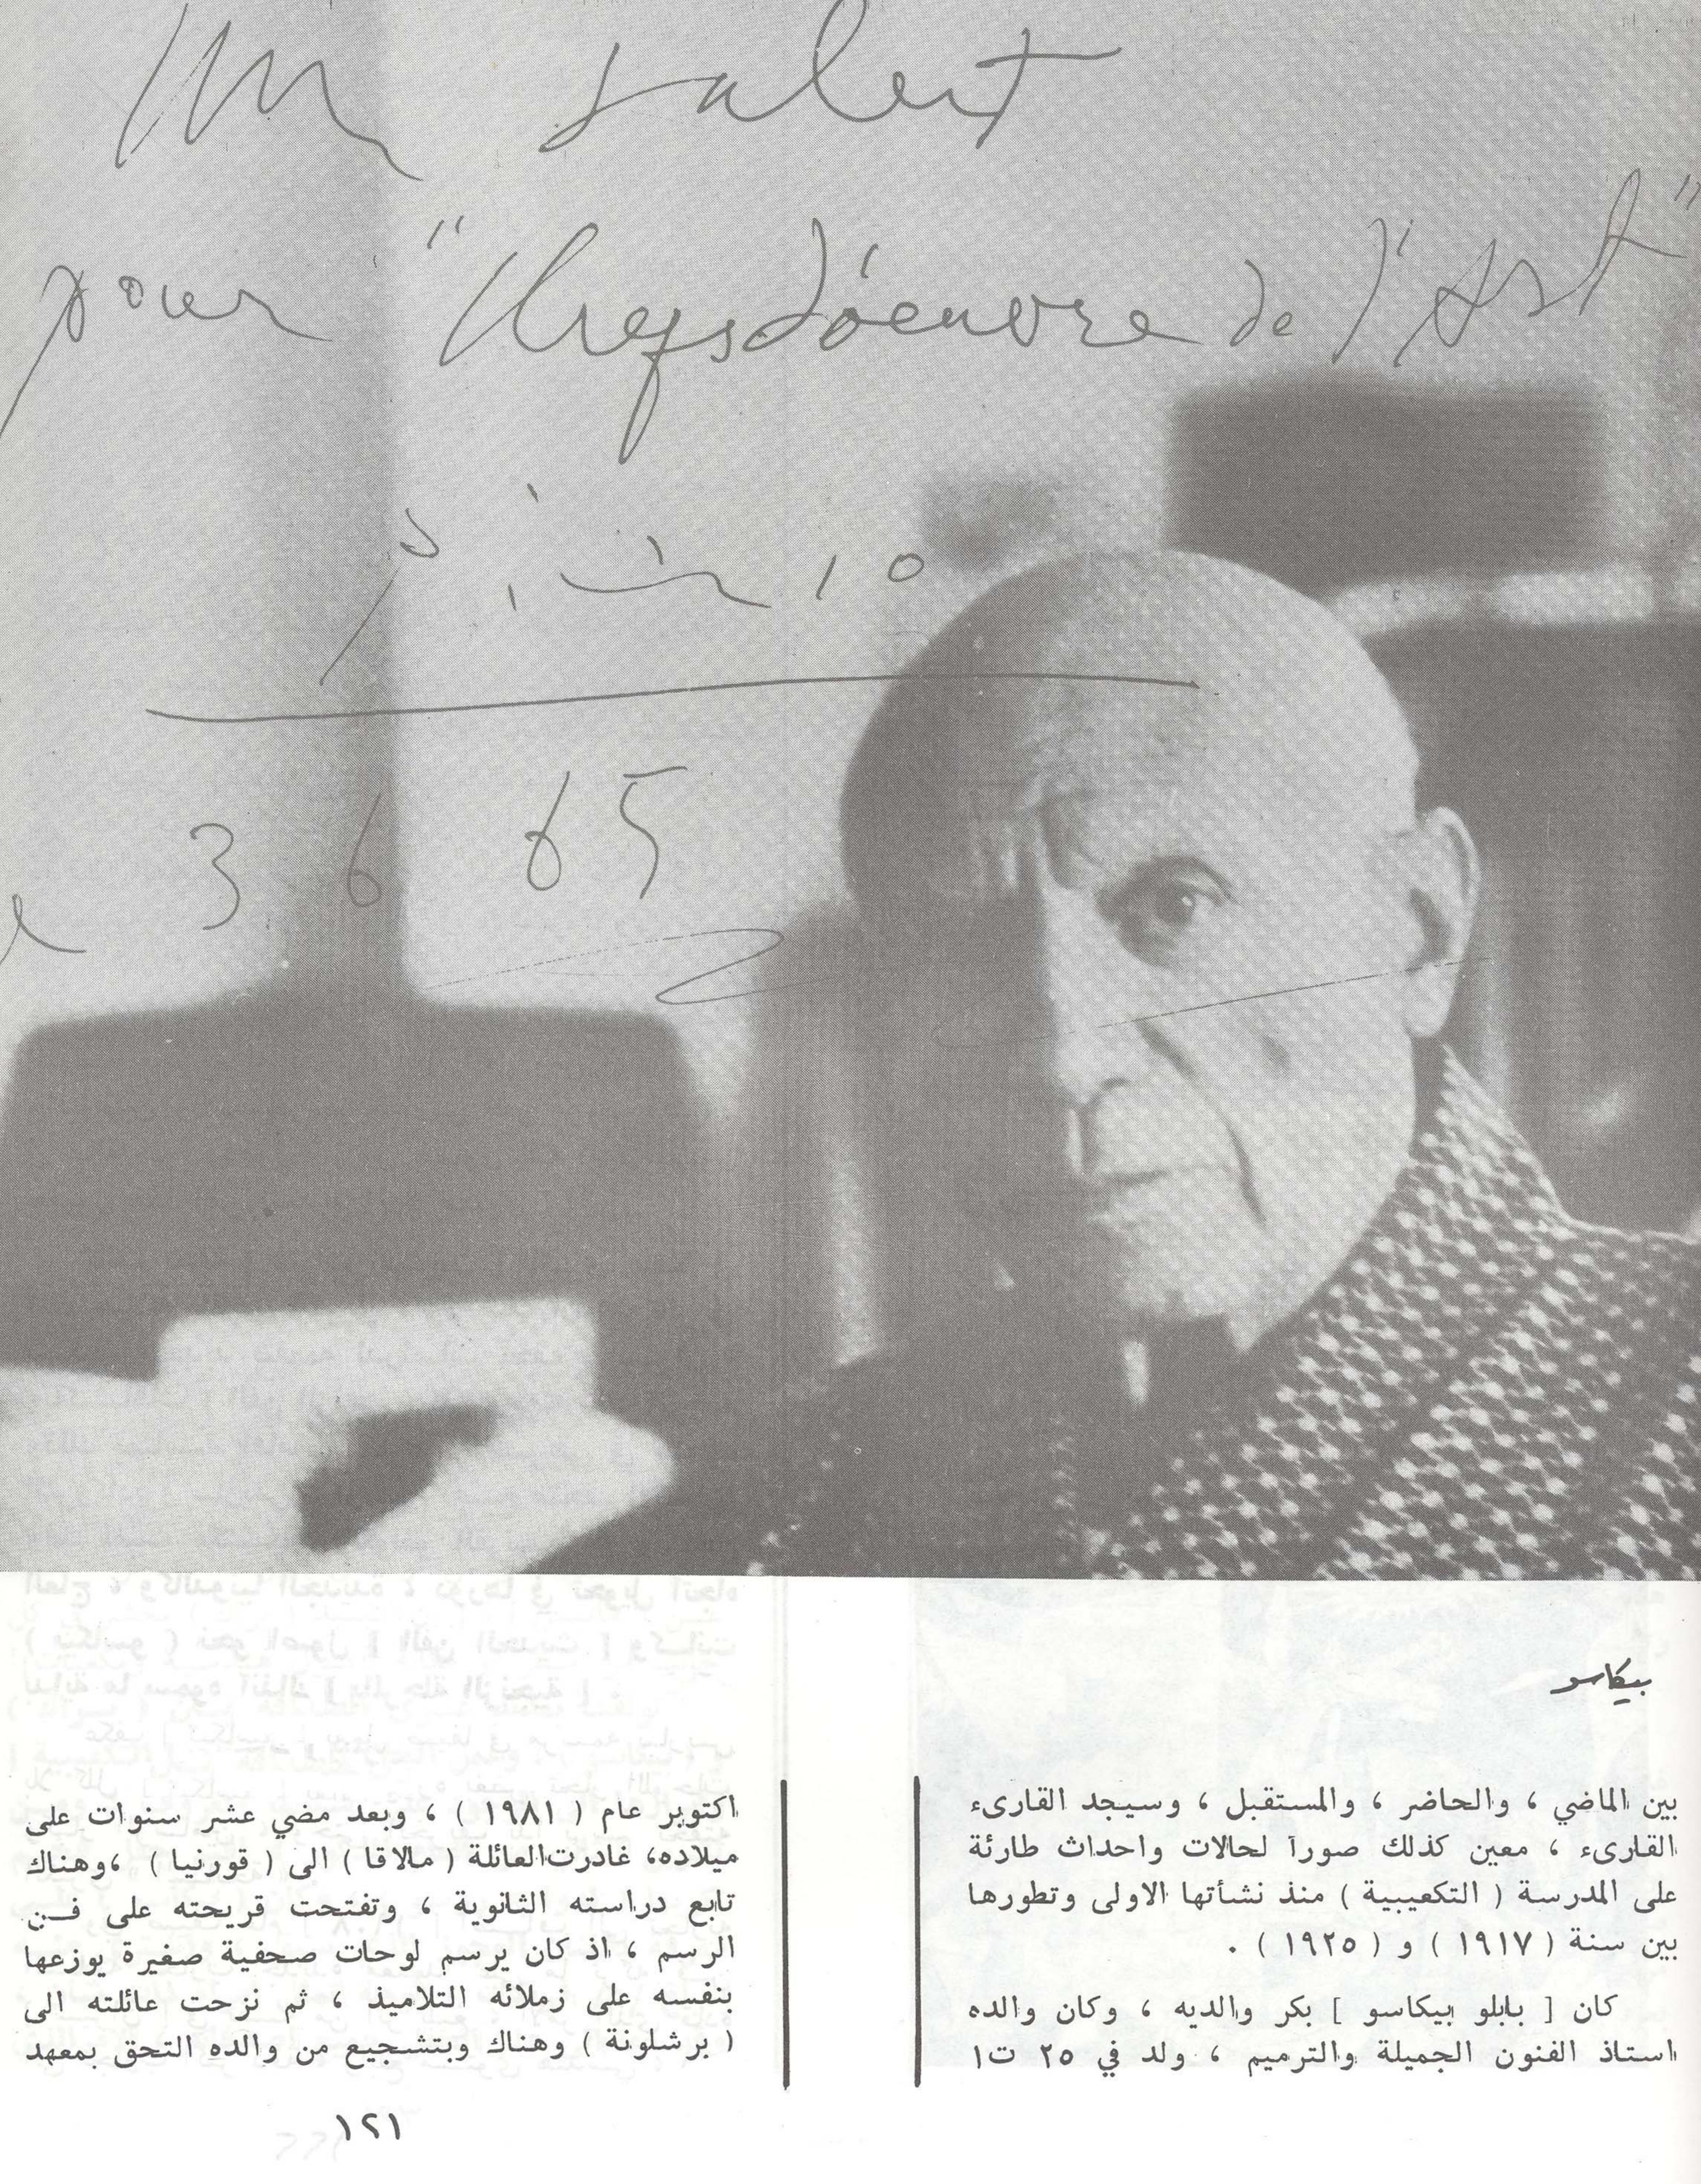 un salut
pour "Chefs d'œuvre de l'Art"
3 6 65
بيكاسو
بين الماضي ، والحاضر ، والمستقبل ، وسيجد القارىء
القارىء ، معين كذلك صوراً لحالات واحداث طارئة
على المدرسة ( التكعيبية ) منذ نشأتها الاولى وتطورها
بين سنة ( ١٩١٧ ) و ( ١٩٢٥ ) .
كان [ بابلو بيكاسو ] بكر والديه ، وكان والده
استاذ الفنون الجميلة والترميم ، ولد في ٢٥ ت١
اكتوبر عام ( ١٩٨١ ) ، وبعد مضي عشر سنوات على
ميلاده، غادرت العائلة ( مالاقا ) الى ( قورنيا ) ،وهناك
تابع دراسته الثانوية ، وتفتحت قريحته على فـن
الرسم ، اذ كان يرسم لوحات صحفية صغيرة يوزعها
بنفسه على زملائه التلاميذ ، ثم نزحت عائلته الى
( برشلونة ) وهناك وبتشجيع من والده التحق بمعهد
١٢١